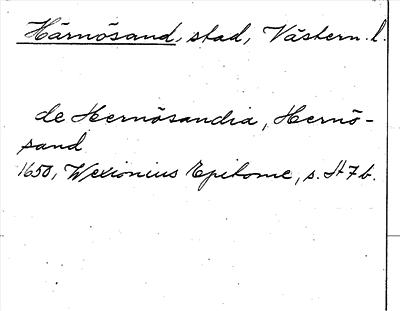 Härnösand, stad, Västern.l.
de Hernösandia, Hernö-
sand
1650, Wexionius Epitome, s. H7b.